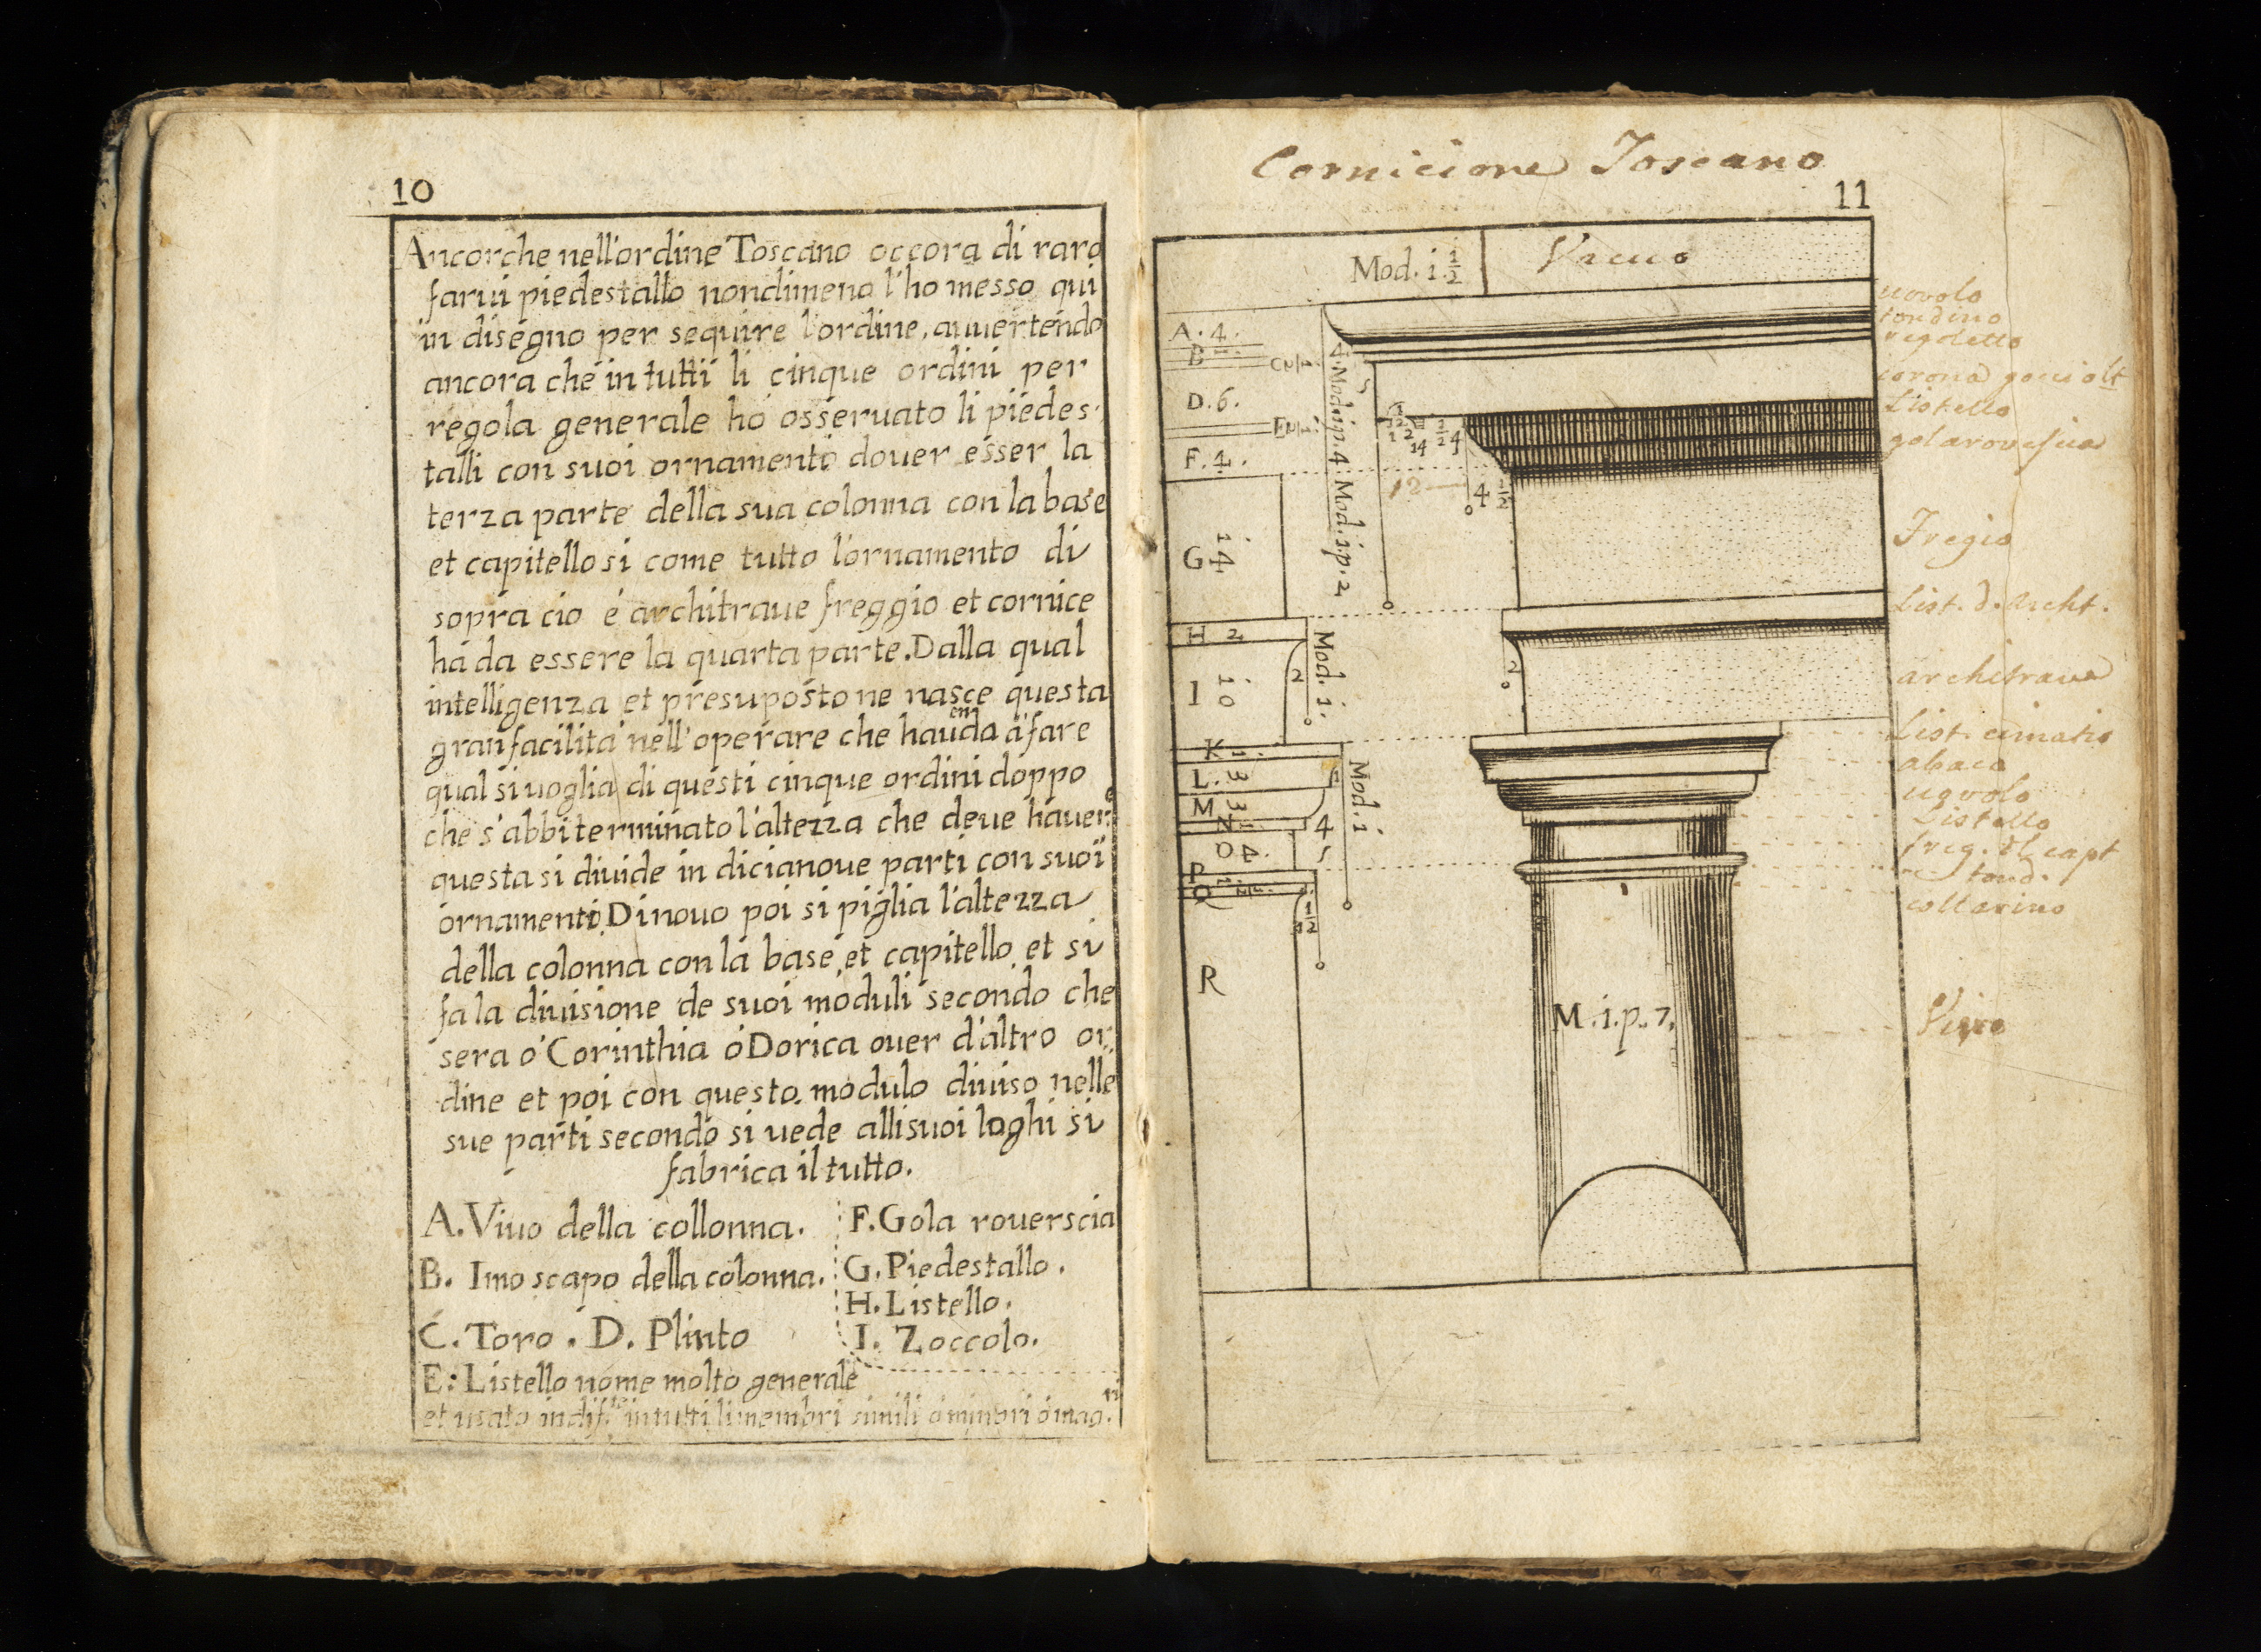 10
Ancorche nell'ordine Toscano occora di raro
farui piedestallo nondimeno l'ho messo qui
in disegno per sequire l'ordine, auuertendo
ancora che in tutti li cinque ordini per
regola generale ho osseruato li piedes:
talli con suoi ornamenti douer esser la
terza parte della sua colonna con la base
et capitello si come tutto l'ornamento di
sopra cio é architraue freggio et cornice
há da essere la quarta parte. Dalla qual
intelligenza et presuposto ne nasce questa
gran facilitá nell'operare che hauenda á fare
qual si uoglia di questi cinque ordini doppo
che s'abbi terminato l'altezza che deue hauere
questa si diuide in dicianoue parti con suoi
ornamenti. Di nouo poi si piglia l'altezza
della colonna con la base, et capitello, et si
fa la diuisione de suoi moduli secondo che
sera o' Corinthia ó Dorica ouer d'altro or:
dine et poi con questo modulo diuiso nelle
sue parti secondo si uede alli suoi loghi si
fabrica il tutto.
A. Viuo della collonna.
B. Imo scapo della colonna.
C. Toro. D. Plinto
E: Listello nome molto generale
et usato indif.te in tutti li membri simili ó minori ó mag.ri
F. Gola rouerscia
G. Piedestallo.
H. Listello.
I. Zoccolo.
Cornicione Toscano
11
Mod. i. 1/2
Vacuo
A. 4.
B 1.
C 1/2
D. 6.
E 1/2
F. 4.
G 14
H 2
I 10
K 1.
L. 3
M 3
N 1.
O 4.
P 1.
Q 1/2
R
4. Mod. i. p. 4
Mod. 1. p. 2
Mod. i.
Mod. i
12
4 1/2
2
2
4
M. i. p. 7.
uovolo
tondino
regoletto
corona gociolt
Listello
gola rovescia
Fregio
List. d. archt.
architrave
List. cimatio
abaco
uovolo
Listello
freg. d capt
tond.
collarino
Vivo